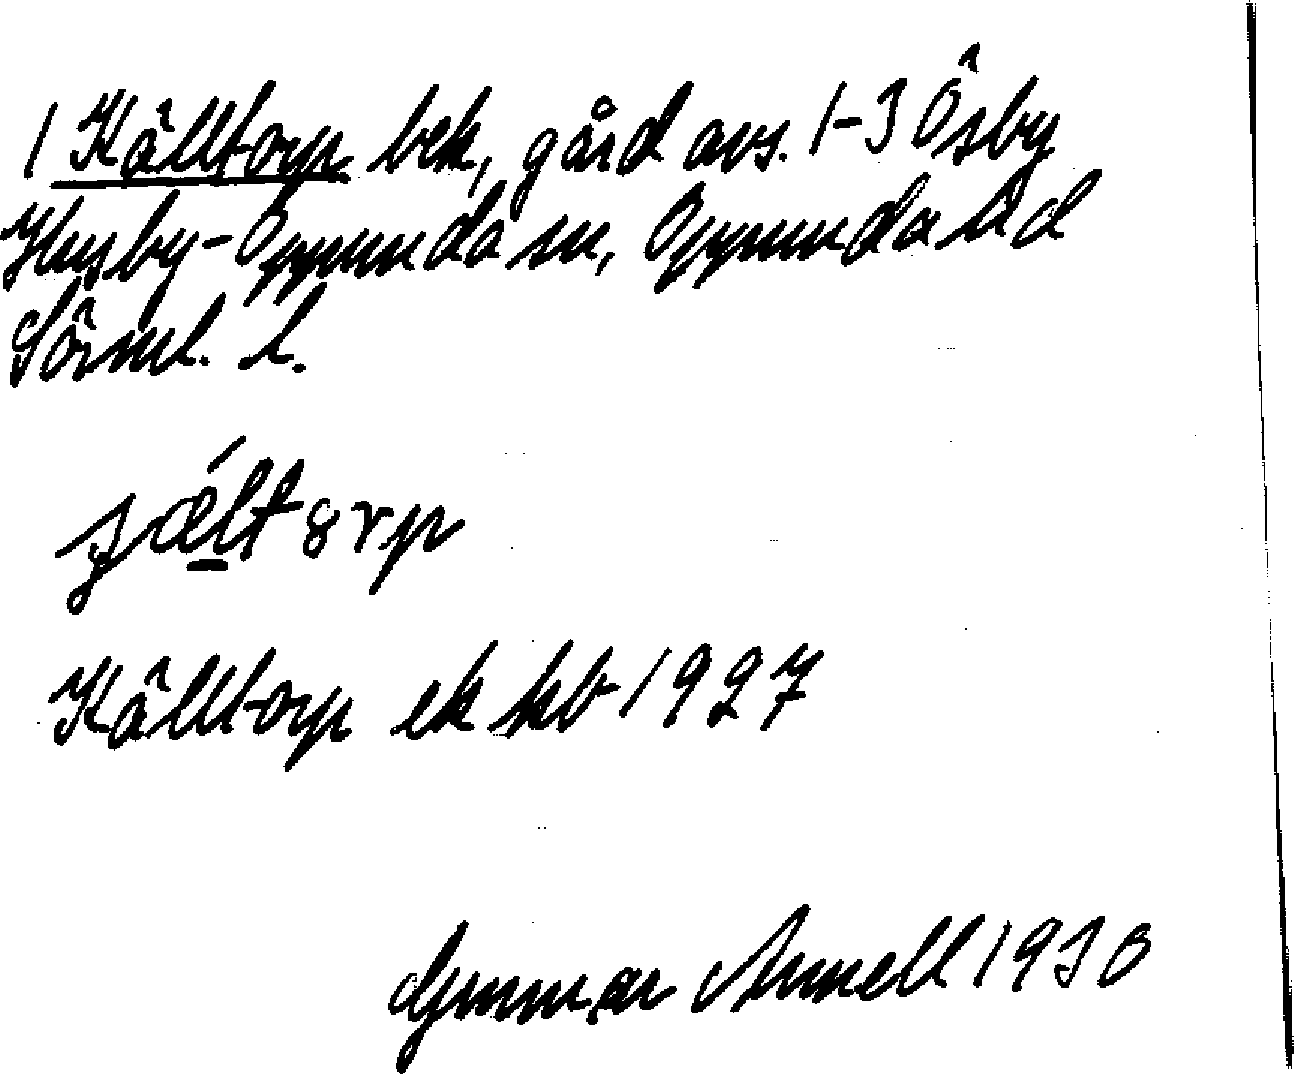 1 Källtorp bek, gård avs. 1-3 Ösby
Husby-Oppunda sn, Oppunda hd
Sörml. l.
ʃǽlt8rp
Källtorp ek kb 1927
Gunnar Annell 1930